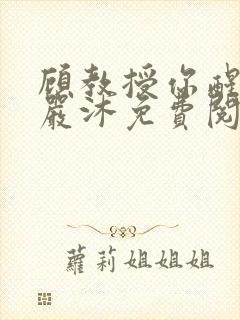 顾教授你醒
嚴沐免費閱
蘿莉姐姐姐